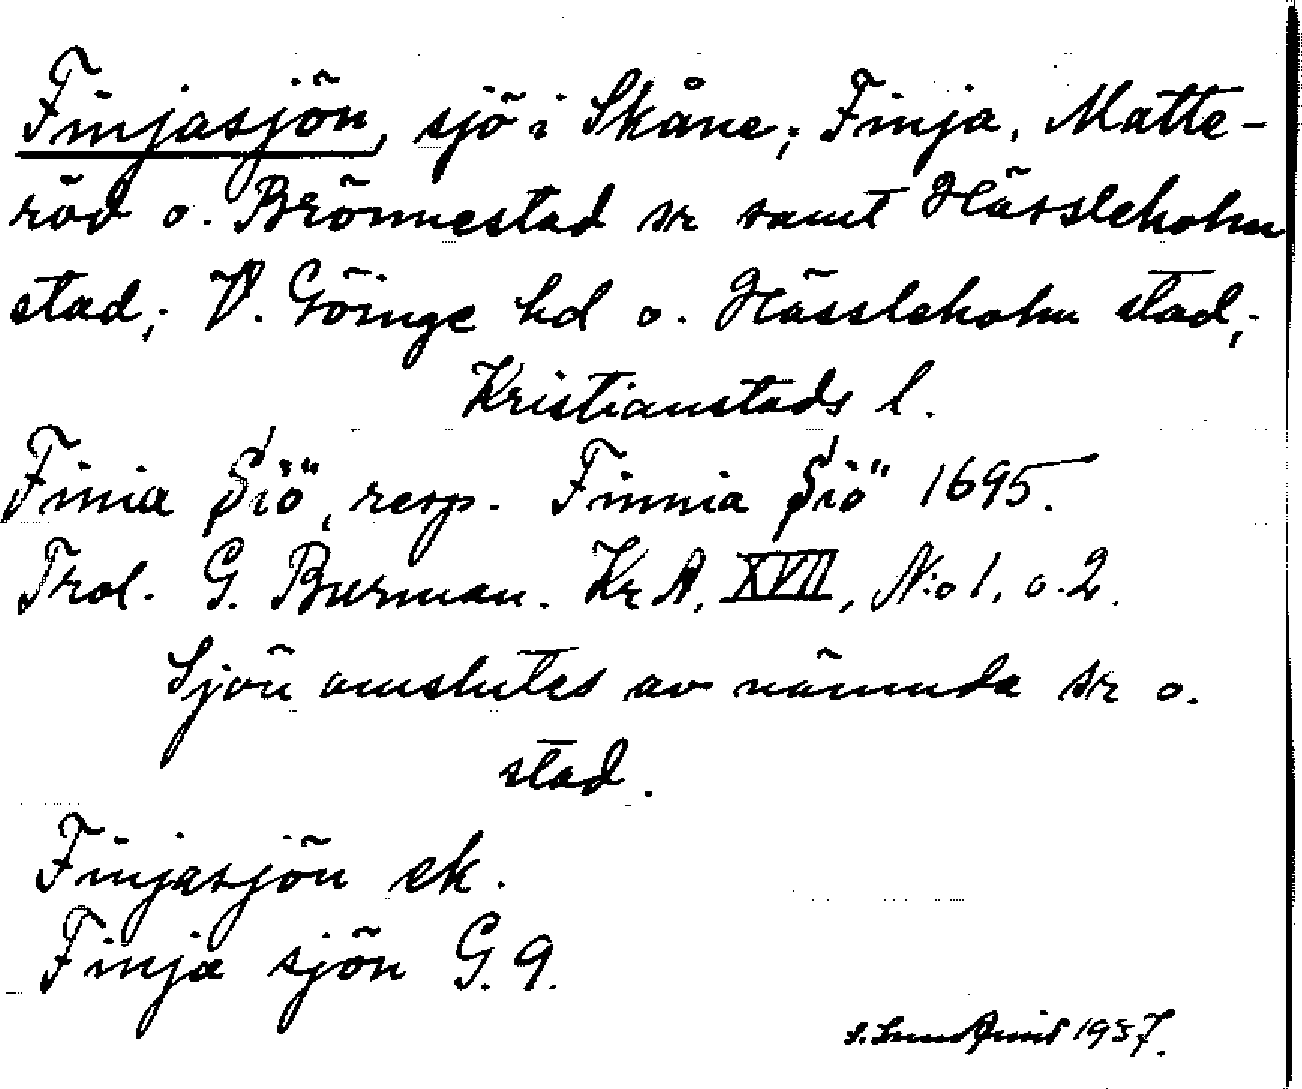 Finjasjön, sjö i Skåne; Finja, Matte-
röd o. Brönnestad sr samt Hässleholm
stad; V. Göinge hd o. Hässleholm stad;
Kristianstads l.
Finia Siö, resp. Finnia Siö 1695.
Trol. G. Burman. Kr A, XVII, N:o 1, o. 2.
Sjön omslutes av nämnda sr o.
stad.
Finjasjön ek.
Finja sjön G. 9.
1937.